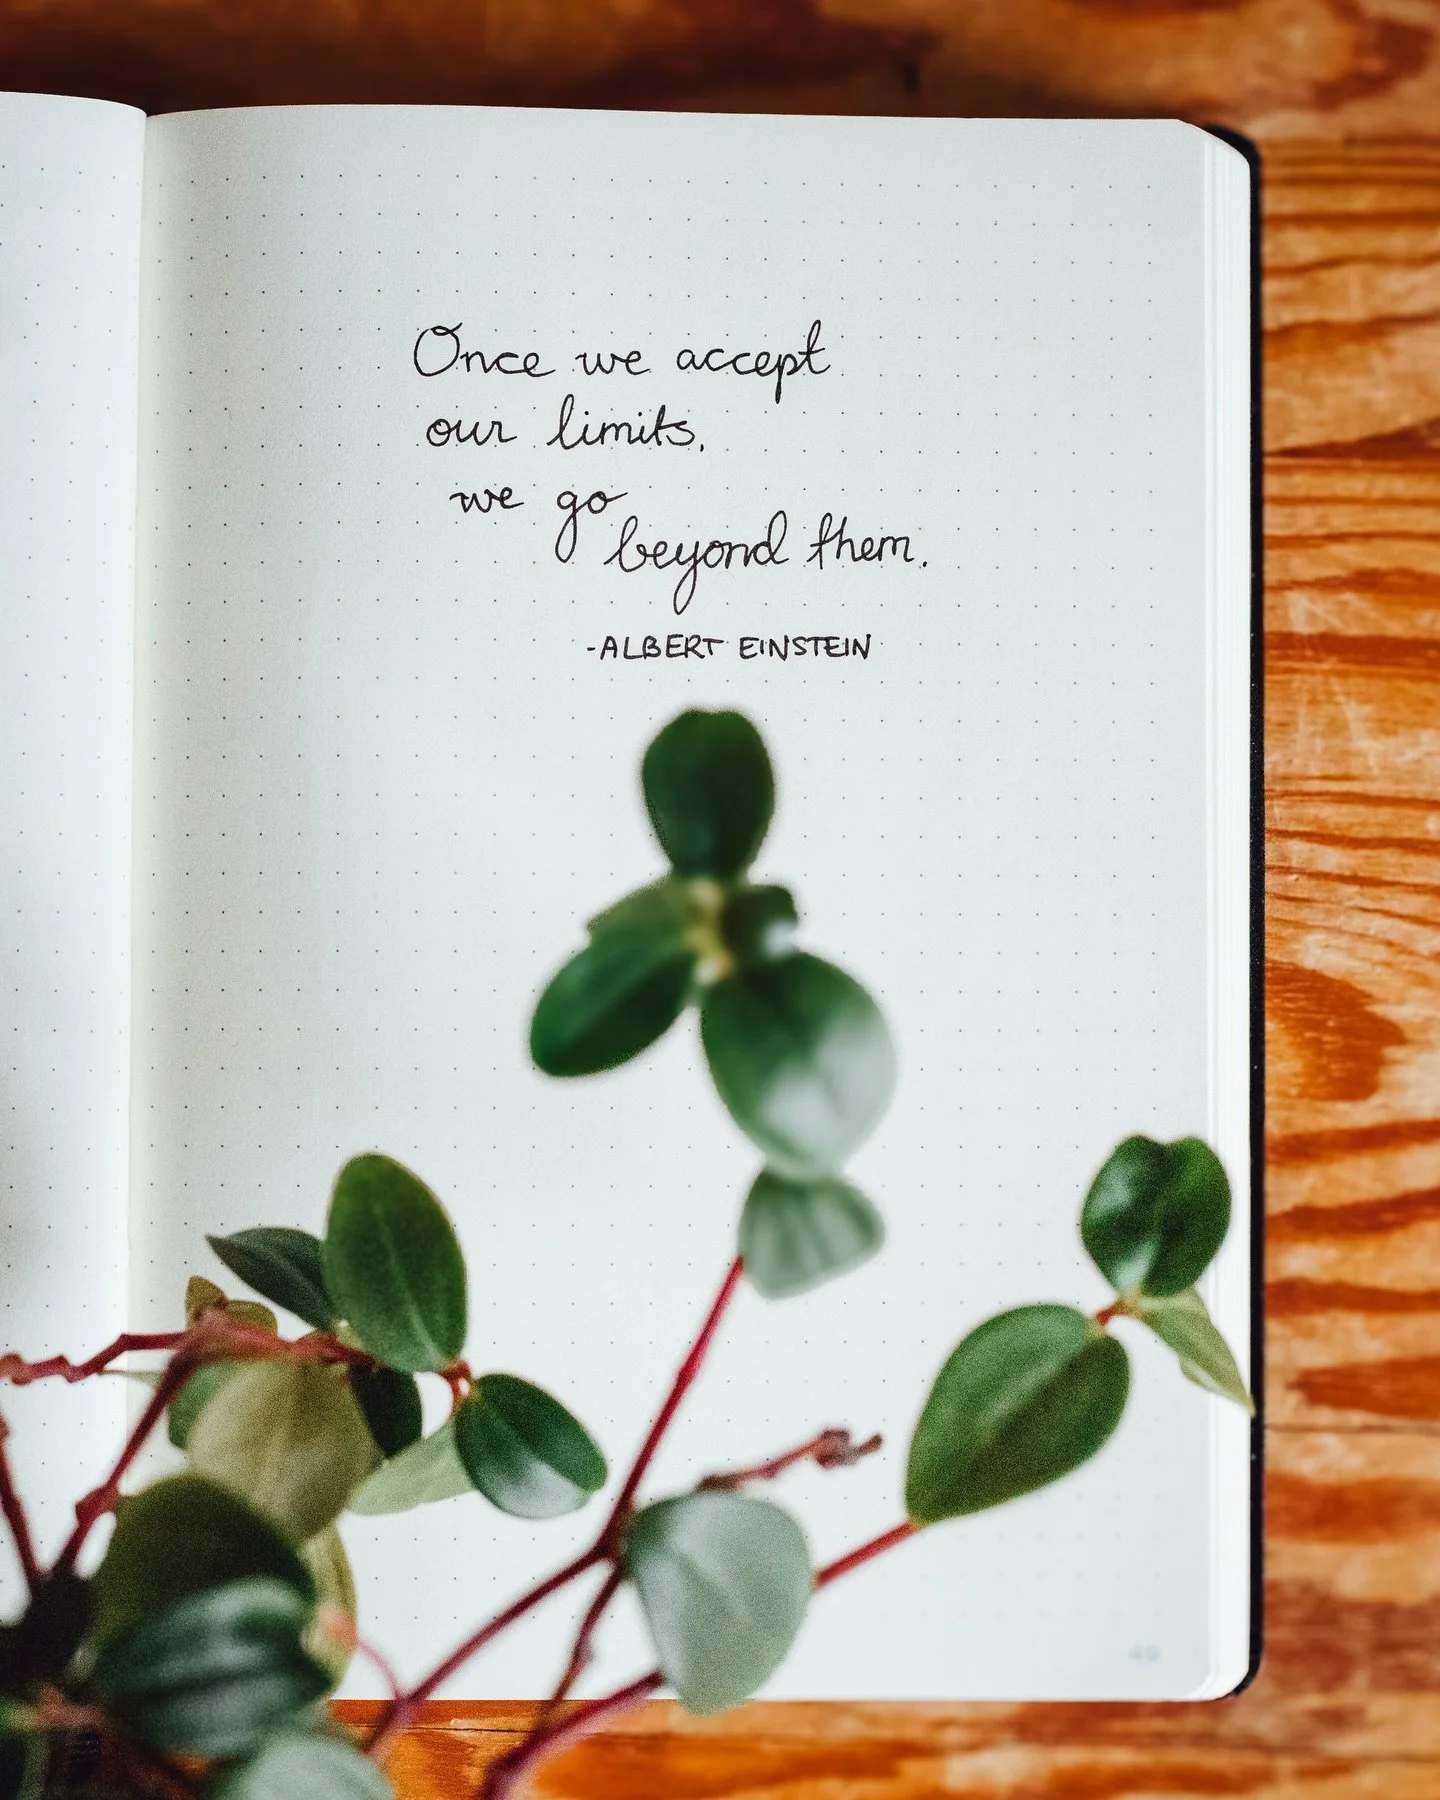 Once we accept
our limits,
we go
beyond them.
-ALBERT EINSTEIN